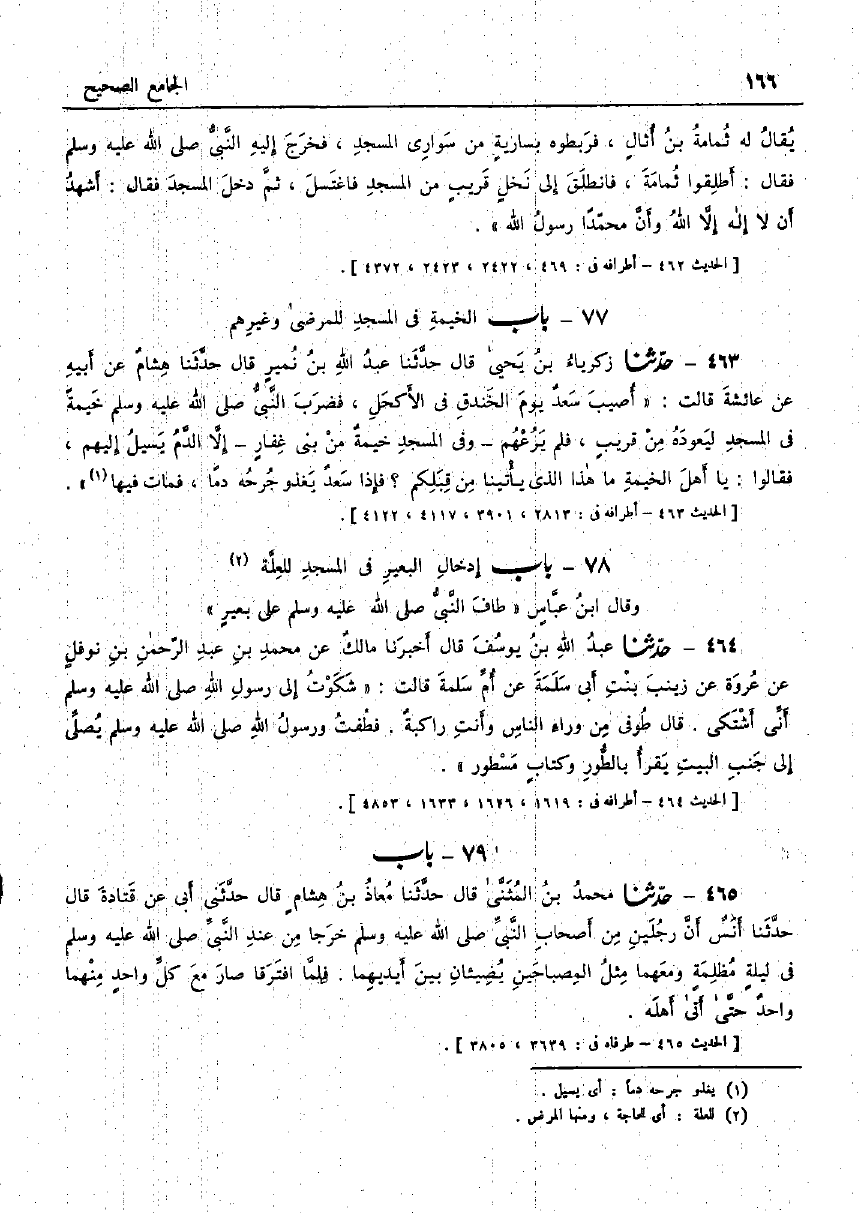 ١٦٦
الجامع الصحيح
يُقالُ له ثُمامةُ بنُ أُثالٍ ، فرَبطوه بسارِيةٍ من سَوارِى المسجدِ ، فخرَجَ إليهِ النَّبيُّ صلى الله عليه وسلم
فقال : أَطلِقوا ثُمامَةَ ، فانطلَقَ إلى نَخلٍ قَريبٍ من المسجدِ فاغتَسلَ ، ثمَّ دخلَ المسجدَ فقال : أَشهدُ
أن لا إلٰه إلَّا اللهُ وأنَّ محمّدًا رسولُ الله » .
[ الحديث ٤٦٢ – أطرافه فى : ٤٦٩ ، ٢٤٢٢ ، ٢٤٢٣ ، ٤٣٧٢ ] .
٧٧ – باب الخيمةِ فى المسجدِ للمرضىٰ وغيرِهم
٤٦٣ – حدّثنا زكرياءُ بنُ يَحيىٰ قال حدَّثَنا عبدُ اللهِ بنُ نُميرٍ قال حدَّثَنا هِشامٌ عن أَبيهِ
عن عائشةَ قالت : « أُصيبَ سَعدٌ يومَ الخَندقِ فى الأَكحَلِ ، فضرَبَ النَّبيُّ صلى الله عليه وسلم خَيمةً
فى المسجدِ ليَعودَهُ مِنْ قريبٍ ، فلم يَرُعْهُم – وفى المسجدِ خيمةٌ منْ بنى غِفارٍ – إلَّا الدَّمُ يَسيلُ إليهم ،
فقالوا : يا أَهلَ الخيمةِ ما هٰذا الذى يأْتينا مِن قِبَلِكم ؟ فإذا سَعدٌ يَغذو جُرحُه دمًا ، فمات فيها (١) » .
[ الحديث ٤٦٣ – أطرافه فى : ٢٨١٣ ، ٣٩٠١ ، ٤١١٧ ، ٤١٢٢ ] .
٧٨ – باب إدخالِ البعيرِ فى المسجدِ للعِلَّة (٢)
وقال ابنُ عبَّاسٍ « طافَ النَّبيُّ صلى الله عليه وسلم على بعيرٍ »
٤٦٤ – حدّثنا عبدُ اللهِ بنُ يوسُفَ قال أَخبرَنا مالكٌ عن محمدِ بنِ عبدِ الرّحمٰنِ بنِ نوفلٍ
عن عُروةَ عن زينبَ بنْتِ أَبى سَلَمَةَ عن أُمِّ سَلمةَ قالت : « شكَوْتُ إلى رسولِ اللهِ صلى الله عليه وسلم
أَنِّى أَشْتَكى . قال طُوفى مِن وراءِ الناسِ وأَنتِ راكبةٌ . فطُفتُ ورسولُ اللهِ صلى الله عليه وسلم يُصلِّى
إلى جَنبِ البيتِ يَقرأُ بالطُّورِ وكتابٍ مَسْطور » .
[ الحديث ٤٦٤ – أطرافه فى : ١٦١٩ ، ١٦٢٦ ، ١٦٣٣ ، ٤٨٥٣ ] .
٧٩ – باب
٤٦٥ – حدّثنا محمدُ بنُ المُثنَّىٰ قال حدَّثَنا مُعاذُ بنُ هِشامٍ قال حدَّثَنى أَبى عن قَتادةَ قال
حدَّثَنا أَنَسٌ أَنَّ رجُلَينِ مِن أَصحابِ النَّبيِّ صلى الله عليه وسلم خرَجا مِن عندِ النَّبيِّ صلى الله عليه وسلم
فى ليلةٍ مُظلِمَةٍ ومعَهما مِثلُ المِصباحَينِ يُضِيئانِ بينَ أَيديهِما . فلمَّا افتَرَقا صارَ معَ كلِّ واحدٍ مِنْهما
واحدٌ حتَّىٰ أَتىٰ أَهلَه .
[ الحديث ٤٦٥ – طرفاه فى : ٣٦٣٩ ، ٣٨٠٥ ] .
(١) يغذو جرحه دماً : أى يسيل .
(٢) للعلة : أى للحاجة ، ومنها المرض .